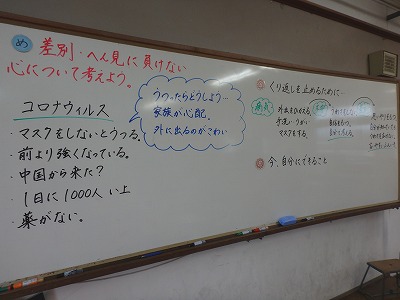 め 差別・へん見に負けない
心について考えよう。
コロナウィルス
・マスクをしないとうつる。
・前より強くなっている。
・中国から来た？
・1日に1000人い上
・薬がない。
うつったらどうしよう…
家族が心配。
外に出るのがこわい
◎くり返しを止めるために…
外出をひかえる。
手洗い・うがい
マスクをする。
◎今、自分にできること